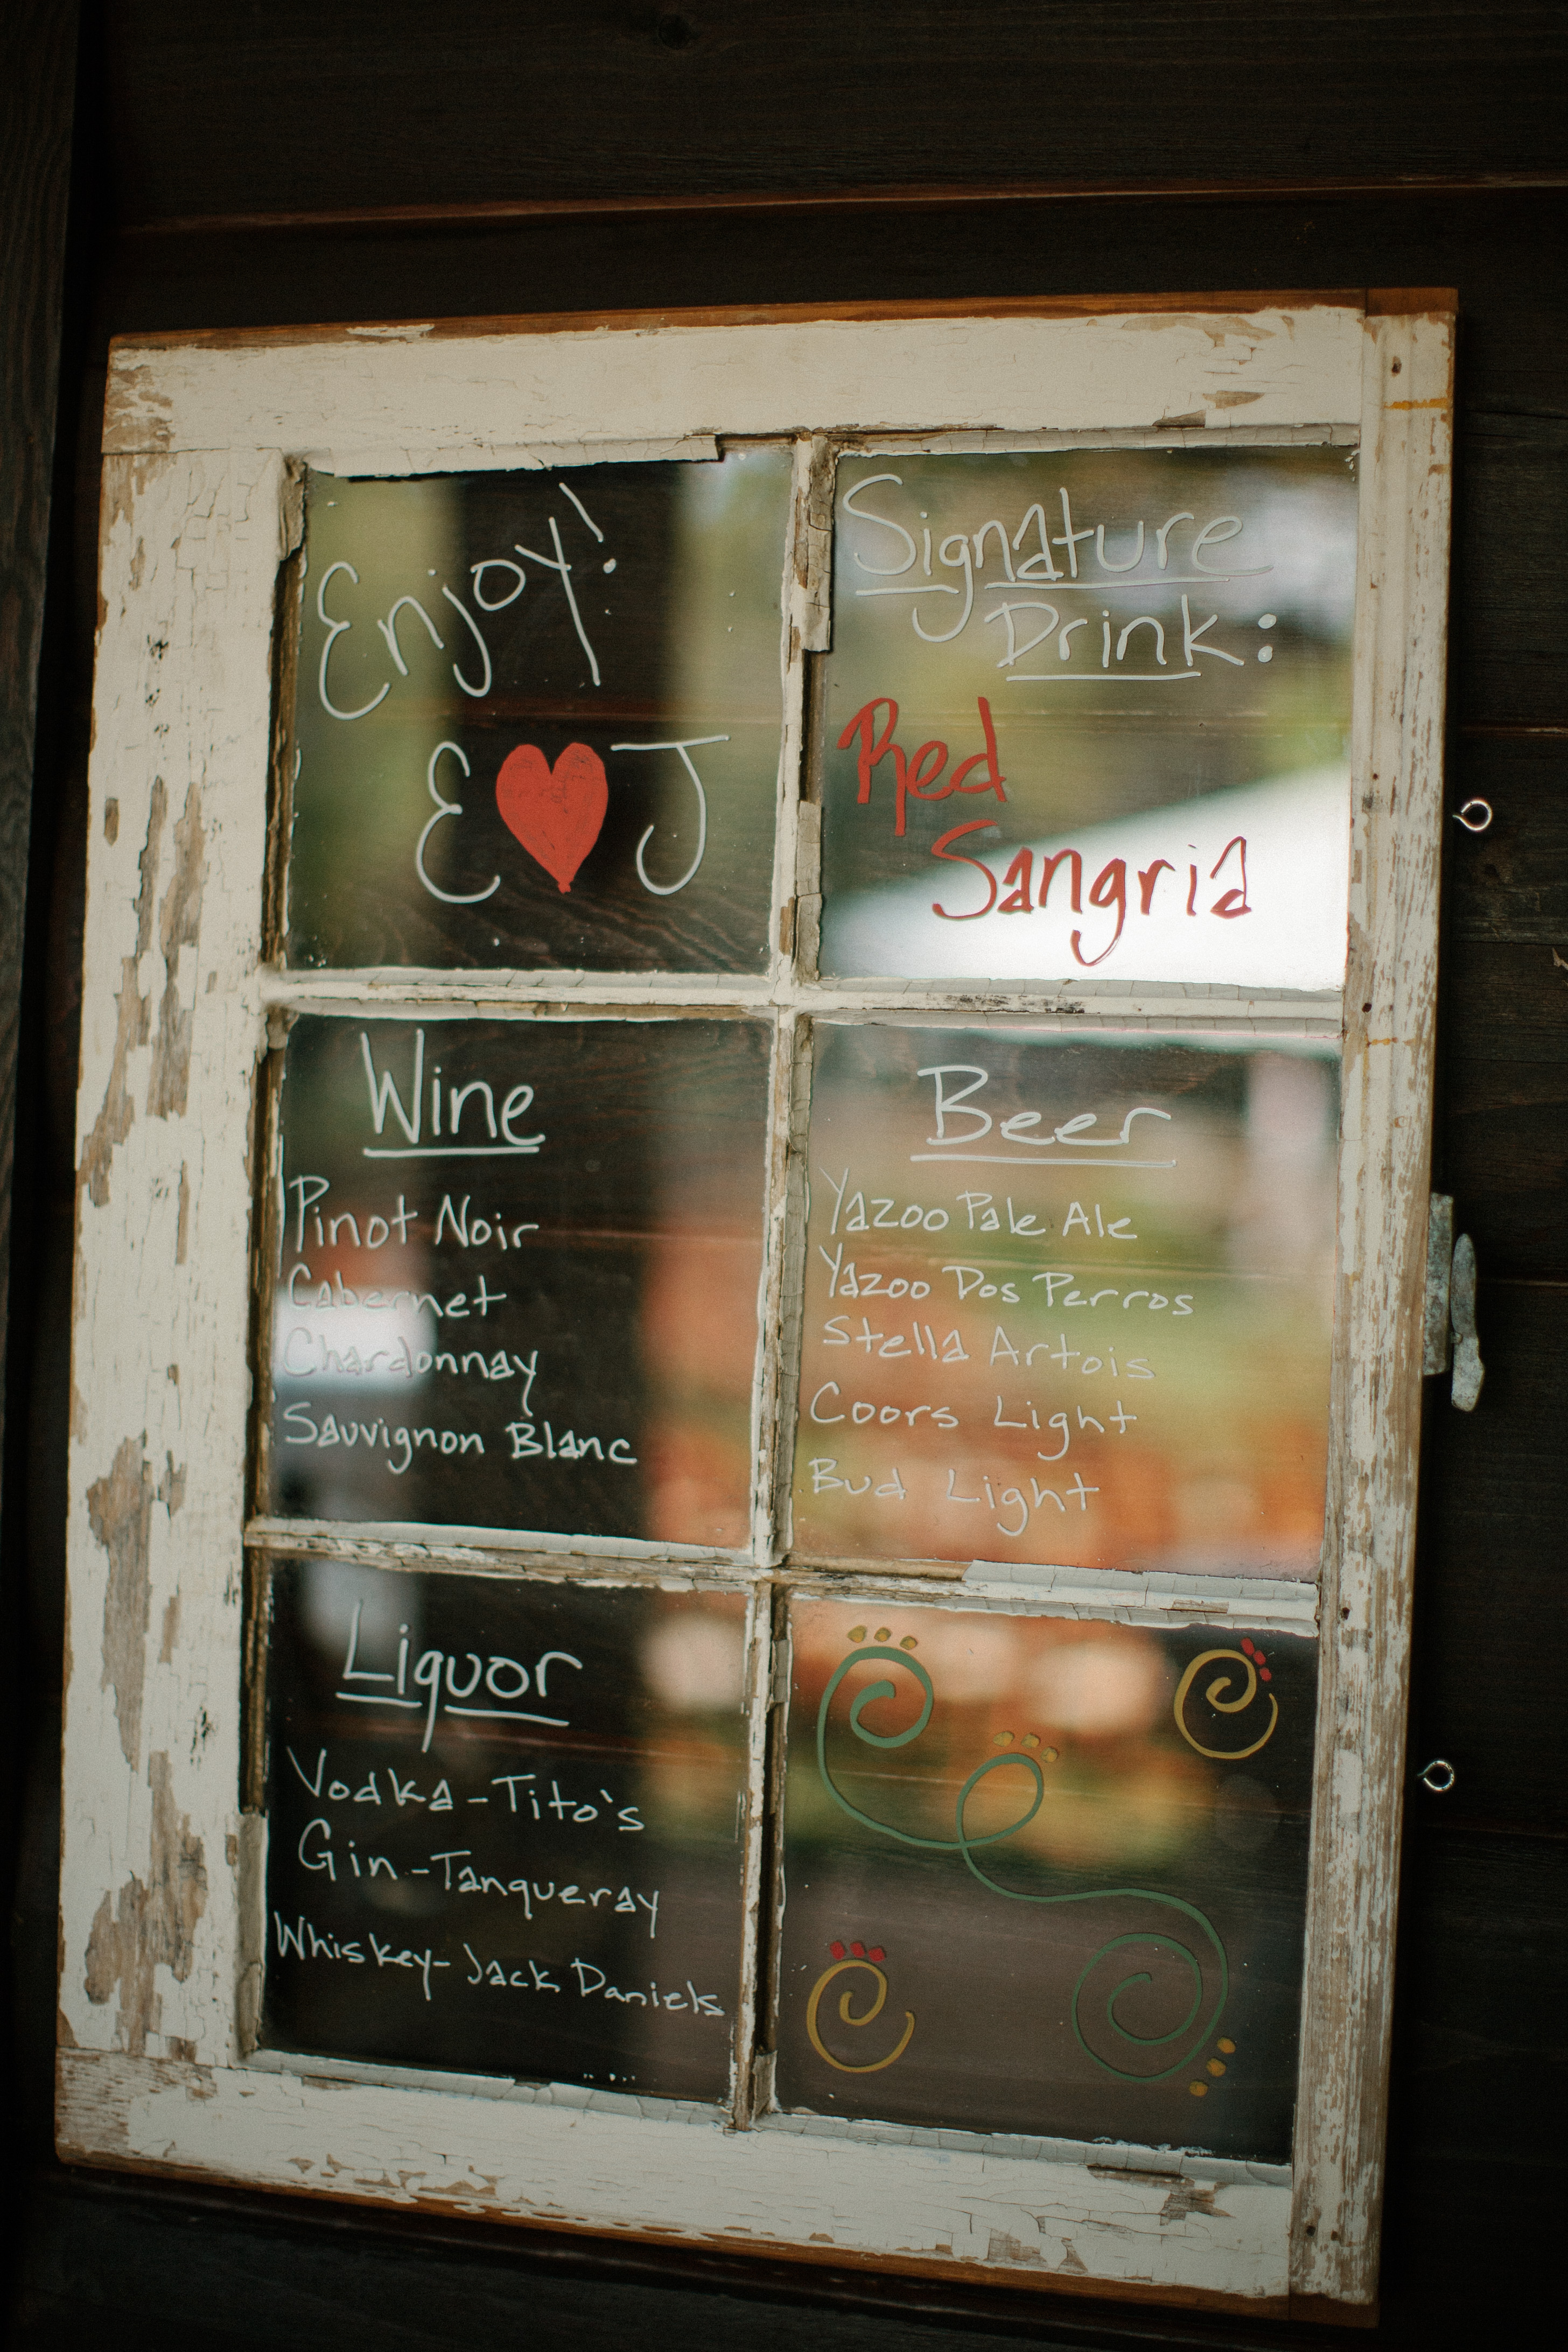 Enjoy!
E ♥ J
Signature
Drink:
Red
Sangria
Wine
Pinot Noir
Cabernet
Chardonnay
Sauvignon Blanc
Beer
Yazoo Pale Ale
Yazoo Dos Perros
Stella Artois
Coors Light
Bud Light
Liquor
Vodka-Tito's
Gin-Tanqueray
Whiskey-Jack Daniels